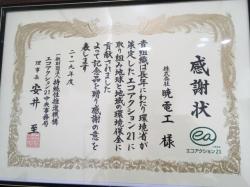 感謝状
株式会社 暁電工 様
貴組織は長年にわたり環境省が
策定したエコアクション21に
取り組み地球と地域の環境保全に
貢献されました
よって記念品を贈り感謝の意を
表します
二〇一九年度
一般財団法人 持続性推進機構
エコアクション21中央事務局
理事長 安井 至
ea
エコアクション21